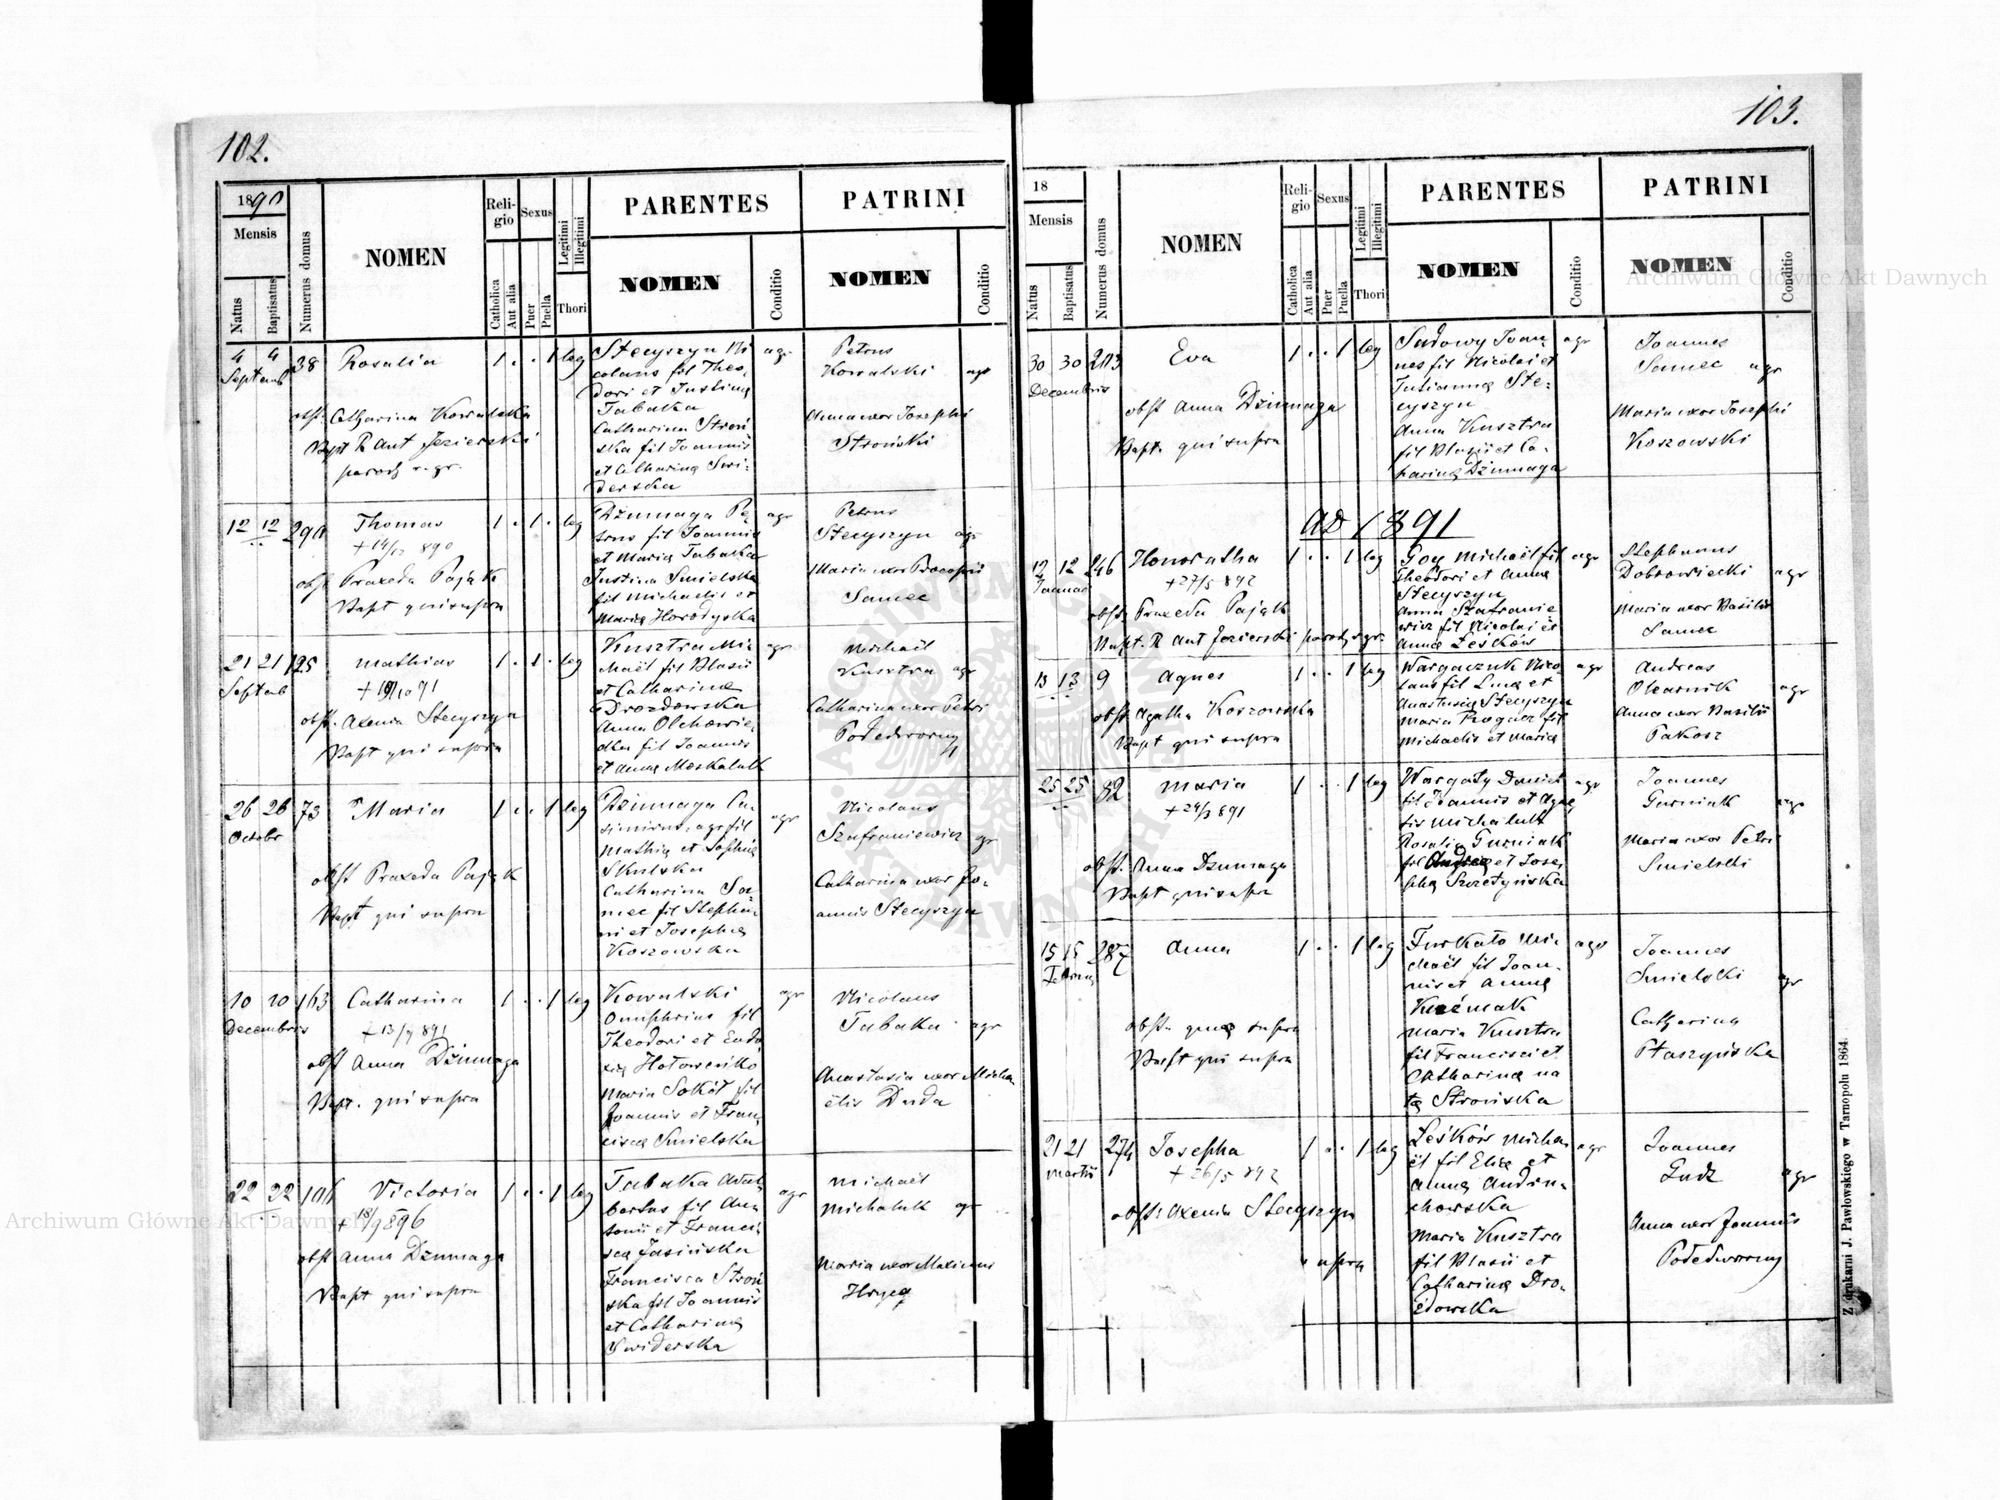 102.
1890
Mensis
Natus
Baptisatus
Numerus domus
NOMEN
Religio
Catholica
Aut alia
Sexus
Puer
Puella
Legitimi
Illegitimi
Thori
PARENTES
NOMEN
Conditio
PATRINI
NOMEN
Conditio
4 4 38 Rosalia 1 . . 1 leg
Septemb
obst. Catharina Kowalska
Bapt R Ant Jezierski
paroch r. gr.
Stecyszyn Ni
colaus fil Theo
dori et Justina
Tabaka
Catharina Stroń
ska fil Joannis
et Catharina Swi
derska
agr
Petrus
Kowalski agr
Anna uxor Josephi
Stroński
12 12 290 Thomas 1 . 1 . leg
+ 14/12 890
obst Praxeda Pająk
Bapt qui supra
Dżumaga Pe
trus fil Joannis
et Maria Tabaka
Justina Smielska
fil Michaelis et
Maria Horodyska
agr
Petrus
Stecyszyn agr
Maria uxor Procopii
Samec
21 21 125 Mathias 1 . 1 . leg
Septemb
obst. Axenia Stecyszyn
Bapt qui supra
Kusztra Mi
chaël fil Blasii
et Catharina
Drozdowska
Anna Olchowie
cka fil Joannis
et Anna Moskaluk
agr
Michaël
Kusztra agr
Catharina uxor Petri
Podedworny
26 26 73 Maria 1 . . 1 leg
Octobr
obst Praxeda Pająk
Bapt qui supra
Dżumaga Ca
simirus, agr fil
Mathia et Sophia
Skulska
Catharina Sa
mec fil Stepha
ni et Josepha
Koszowska
agr
Nicolaus
Szafraniewicz agr
Catharina uxor Jo
annis Stecyszyn
10 10 163 Catharina 1 . . 1 leg
Decembris
+ 13/7 891
obst Anna Dżumaga
Bapt. qui supra
Kowalski
Onuphrius fil
Theodori et Eudo
xia Hotowenko
Maria Sokół fil
Joannis et Fran
cisca Smielska
agr
Nicolaus
Tabaka agr
Anastasia uxor Micha
ëlis Duda
22 22 106 Victoria 1 . . 1 leg
+ 18/9 896
obst Anna Dżumaga
Bapt qui supra
Tabaka Adal
bertus fil An
tonii et Franci
sca Jasińska
Francisca Stroń
ska fil Joannis
et Catharina
Swiderska
agr
Michaël
Michaluk agr
Maria uxor Maximi
Hryca
103.
18
Mensis
Natus
Baptisatus
Numerus domus
NOMEN
Religio
Catholica
Aut alia
Sexus
Puer
Puella
Legitimi
Illegitimi
Thori
PARENTES
NOMEN
Conditio
PATRINI
NOMEN
Conditio
30 30 203 Eva 1 . . 1 leg
Decembris
obst Anna Dżumaga
Bapt. qui supra
Sadowy Joan
nes fil Nicolai et
Julianna Ste
cyszyn
Anna Kusztra
fil Blasii et Ca
tharina Dżumaga
agr
Joannes
Samec agr
Maria uxor Josephi
Koszowski
AD 1891
12 12 246 Honoratha 1 . . 1 leg
Januar
+ 27/5 892
obst. Praxeda Pająk
Bapt. R Ant Jezierski paroch r gr.
Goy Michaël fil
Theodori et Anna
Stecyszyn
Anna Szafranie
wicz fil Nicolai et
Anna Leśków
agr
Stephanus
Dobrowiecki agr
Maria uxor Basilii
Samec
13 13 9 Agnes 1 . . 1 leg
obst Agatha Koszowska
Bapt qui supra
Wargaczuk Nico
laus fil Luca et
Anastasia Stecyszyn
Maria fil
Michaelis et Maria
agr
Andreas
Olearnik agr
Anna uxor Basilii
Pakosz
25 25 82 Maria 1 . . 1 leg
+ 24/3 891
obst. Anna Dzumaga
Bapt qui supra
Wargaty Daniel
fil Joannis et Agne
tis Michaluk
Rosalia Gurniak
fil Andrea et Jose
pha Szretyńska
agr
Joannes
Gurniak agr
Maria uxor Petri
Smielski
15 15 287 Anna 1 . . 1 leg
Februar
obst. quae supra
Bapt qui supra
Furkało Mi
chaël fil Joan
nis et Anna
Kuźmak
Maria Kusztra
fil Francisci et
Catharina na
ta Strońska
agr
Joannes
Smielski agr
Catharina
Ptaszyńska
21 21 274 Josepha 1 . . 1 leg
Martii
+ 26/5 892
obst. Axenia Stecyszyn
supra
Leśków Micha
ël fil Elia et
Anna Andru
chowska
Maria Kusztra
fil Blasii et
Catharina Dro
zdowska
agr
Joannes
Gudz agr
Anna uxor Joannis
Podedworny
Z drukarni J. Pawłowskiego w Tarnopolu 1864.
Archiwum Główne Akt Dawnych
Archiwum Główne Akt Dawnych
ARCHIWUM GŁÓWNE AKT DAWNYCH